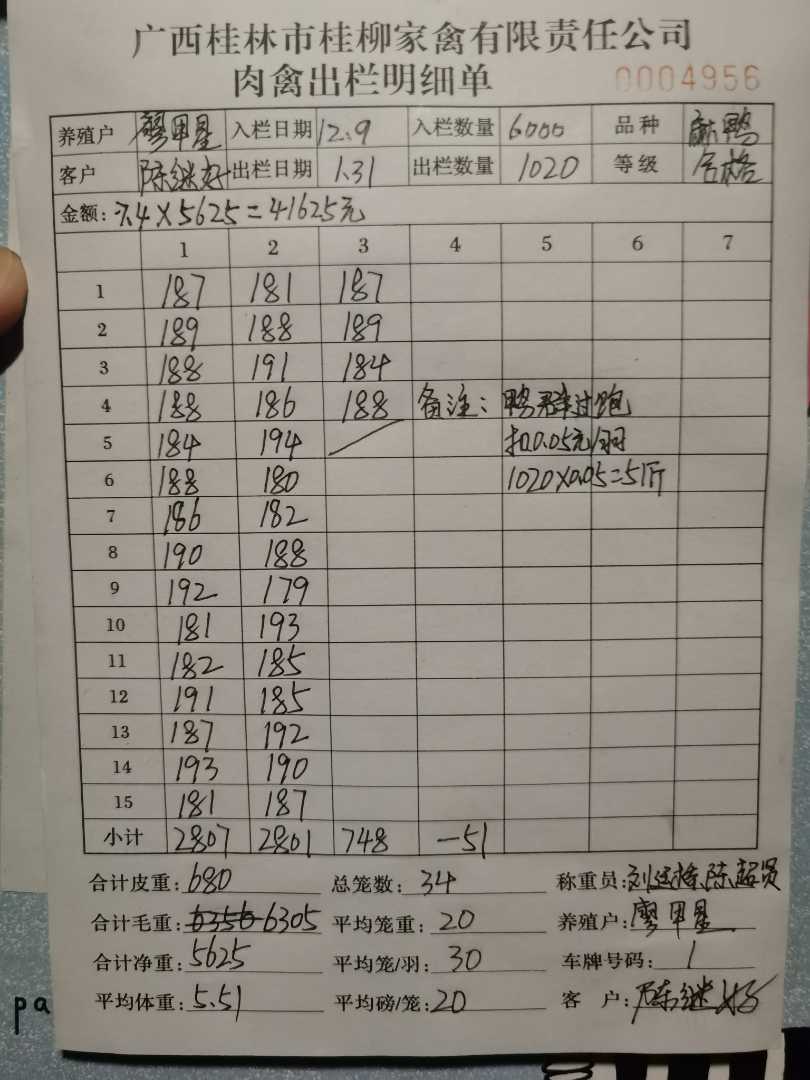 广西桂林市桂柳家禽有限责任公司
肉禽出栏明细单 0004956
养殖户 廖甲星 入栏日期 12.9 入栏数量 6000 品种 麻鸭
客户 陈继好 出栏日期 1.31 出栏数量 1020 等级 合格
金额: 7.4×5625=41625元
1 2 3 4 5 6 7
1 187 181 187
2 189 188 189
3 188 191 184
4 188 186 188 备注: 鸭群过饱
5 184 194 扣0.05元/羽
6 188 180 1020×0.05=51斤
7 186 182
8 190 188
9 192 179
10 181 193
11 182 185
12 191 185
13 187 192
14 193 190
15 181 187
小计 2807 2801 748 -51
合计皮重: 680 总笼数: 34 称重员: 陈超贤
合计毛重: 6356 6305 平均笼重: 20 养殖户: 廖甲星
合计净重: 5625 平均笼/羽: 30 车牌号码: 1
平均体重: 5.51 平均磅/笼: 20 客户: 陈继好
pa